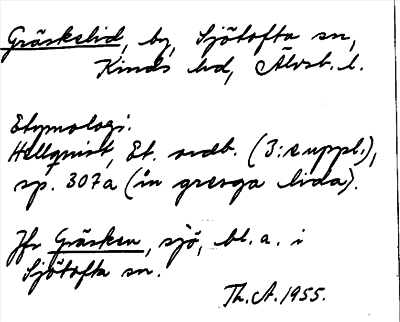 Gräskelid, by, Sjötofta sn,
Kinds hd, Älvsb. l.
Etymologi:
Hellquist, Et. ordb. (3: e uppl.),
sp. 307a (ån grenga lida).
Jfr Gräsken, sjö, bl. a. i
Sjötofta sn.
Th. A. 1955.